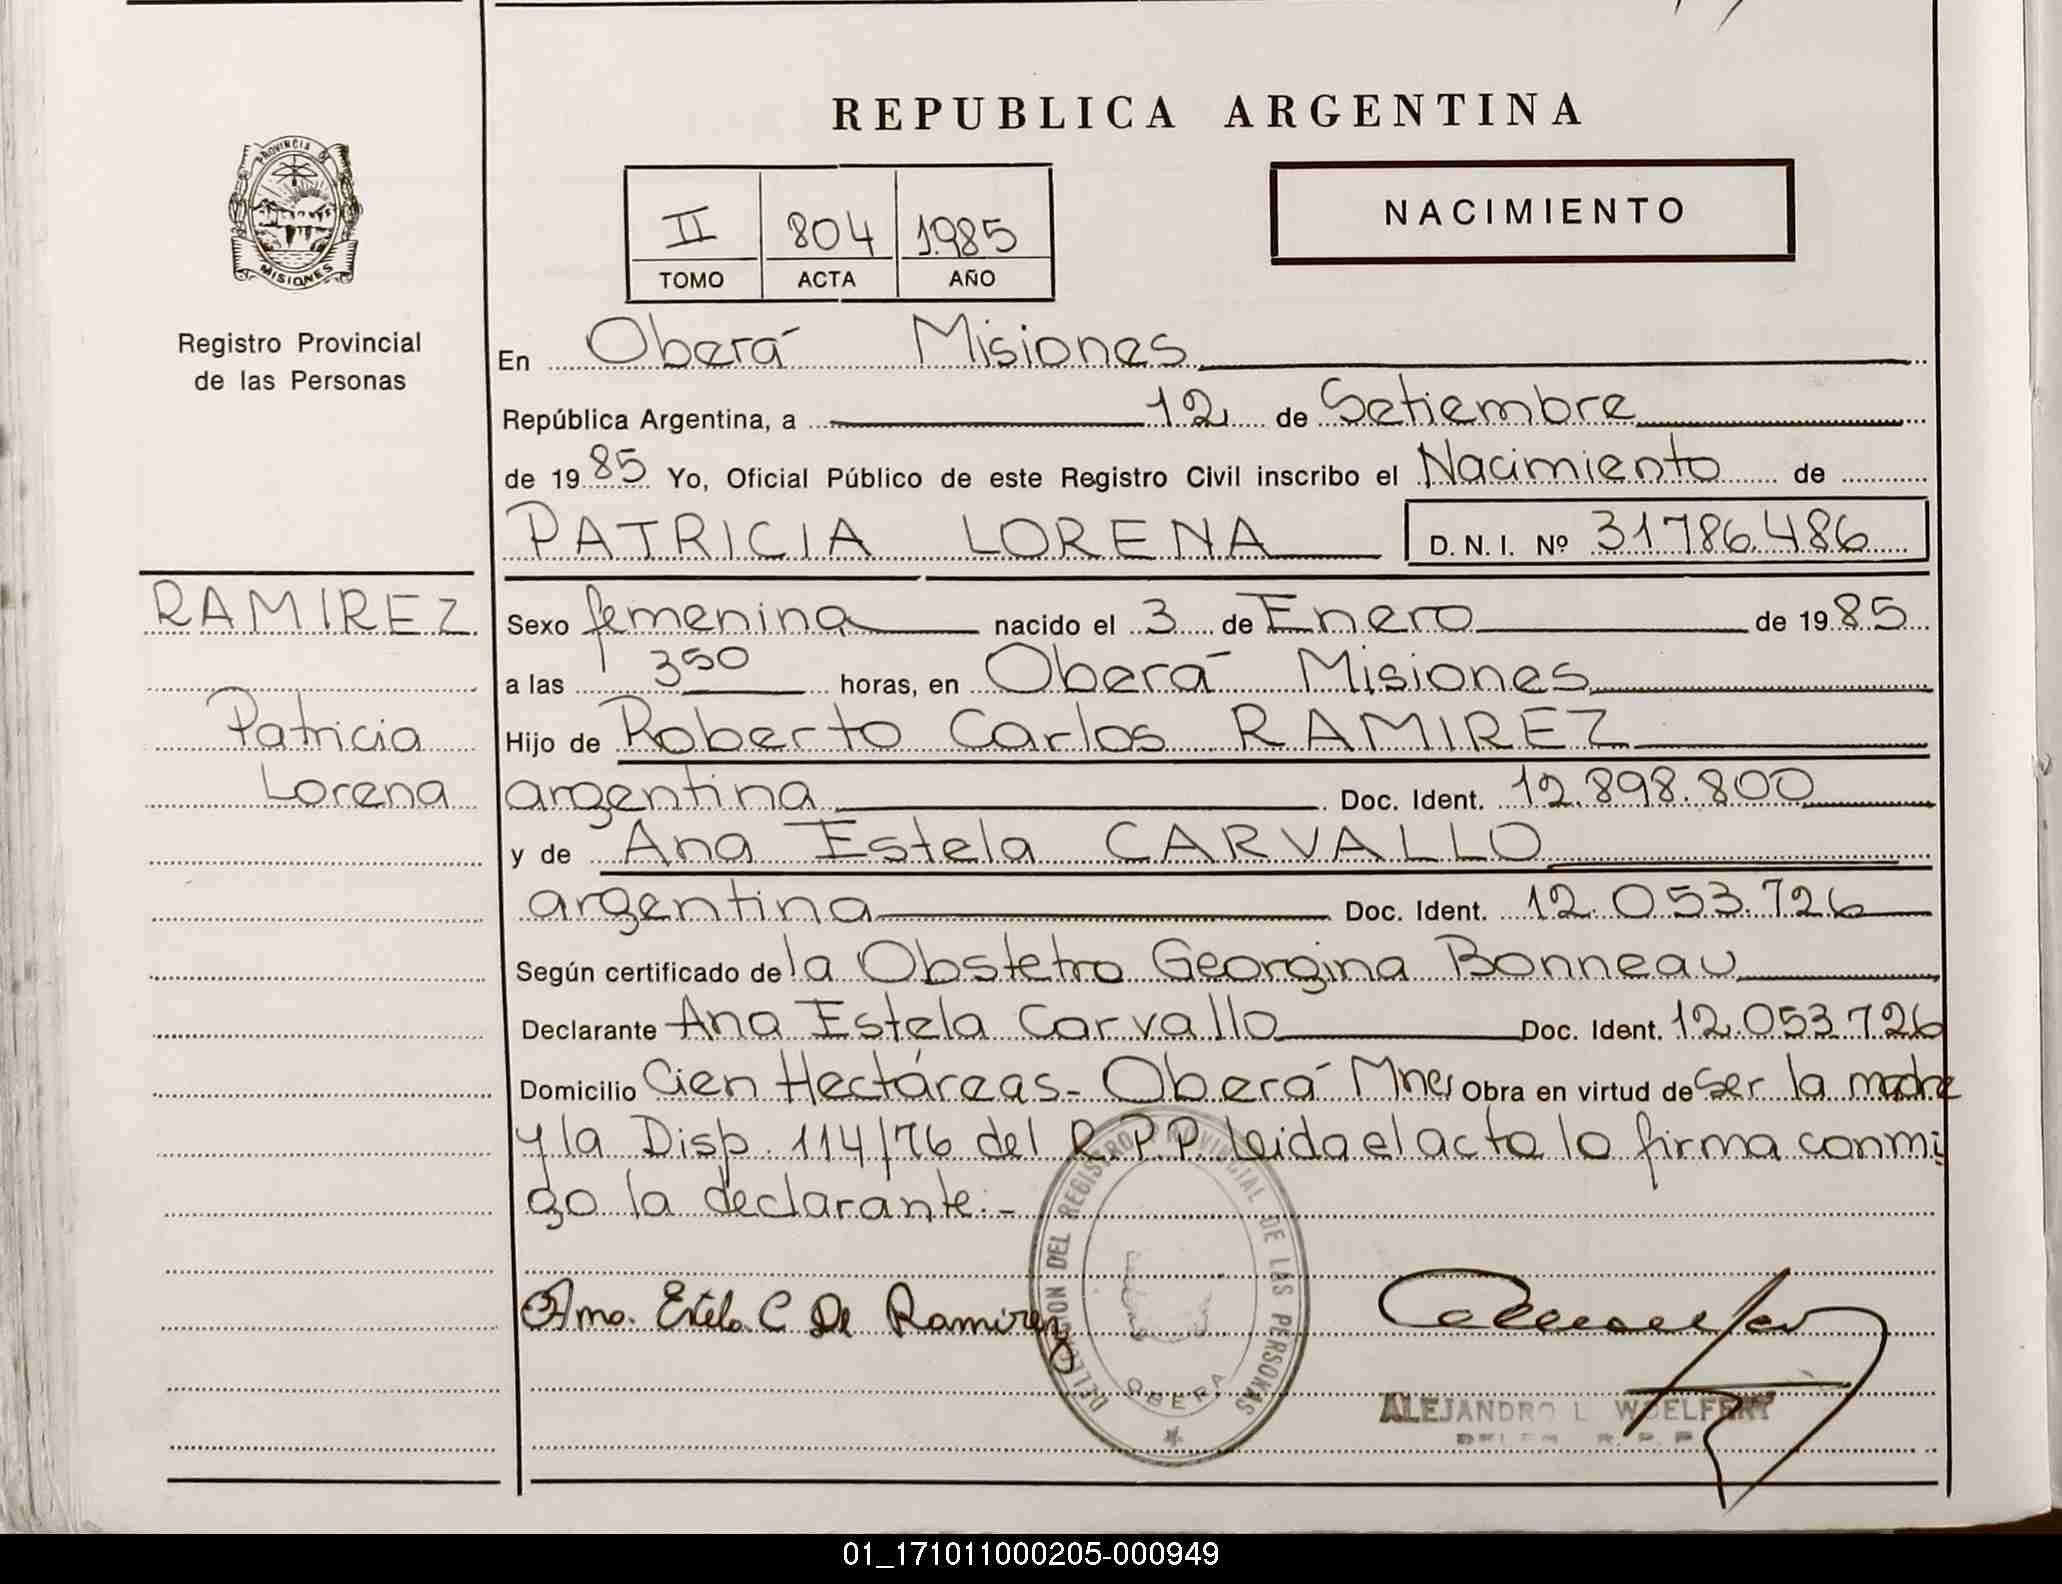 REPUBLICA ARGENTINA
PROVINCIA DE
MISIONES
II 804 1985
TOMO ACTA AÑO
NACIMIENTO
Registro Provincial
de las Personas
En Oberá Misiones
República Argentina, a 12 de Setiembre
de 1985 Yo, Oficial Público de este Registro Civil inscribo el Nacimiento de
PATRICIA LORENA D.N.I. Nº 31786.486
RAMIREZ
Patricia
Lorena
Sexo femenina nacido el 3 de Enero de 1985
a las 350 horas, en Oberá Misiones
Hijo de Roberto Carlos RAMIREZ
argentina Doc. Ident. 12.898.800
y de Ana Estela CARVALLO
argentina Doc. Ident. 12.053.726
Según certificado de la Obstetra Georgina Bonneau
Declarante Ana Estela Carvallo Doc. Ident. 12.053.726
Domicilio Cien Hectáreas - Oberá Mnes Obra en virtud de ser la madre
y la Disp. 114/76 del R.P.P. Leida el acta la firma conmi
go la declarante.-
Ana. Estela. C De Ramirez
DELEGACION DEL REGISTRO PROVINCIAL DE LAS PERSONAS
OBERA
ALEJANDRO L WOELFERT
R.P.P.
01_171011000205-000949